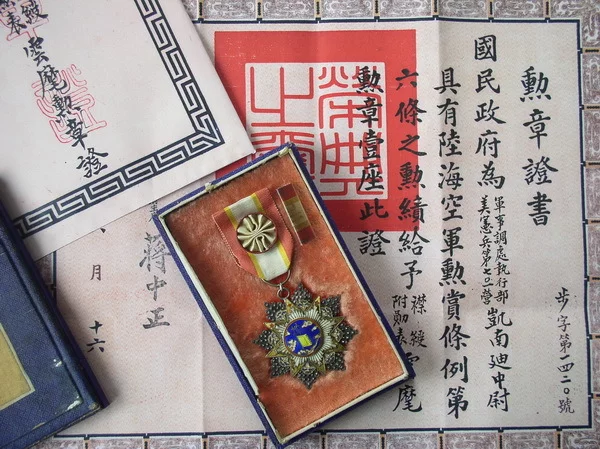 勲章證書
國民政府為軍事調處執行部美憲兵第七〇一營凱南廸中尉
具有陸海空軍勲賞條例第
六條之勲績給予襟綬雲麾附勛表
勲章壹座此證
步字第一四二〇號
榮典之
蔣中正
月
十六
雲麾勲章證